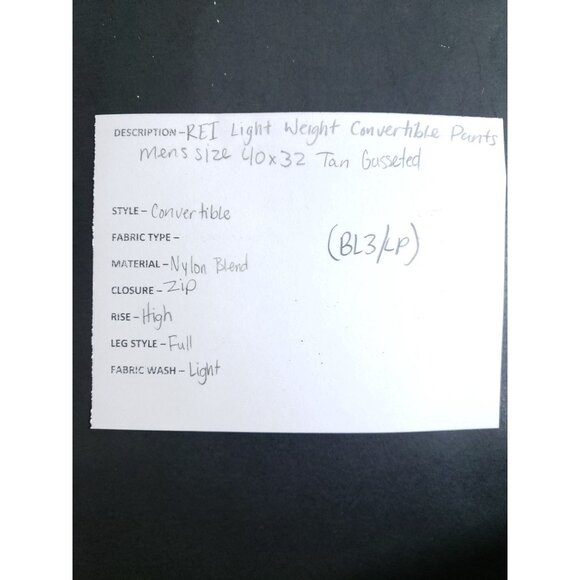 DESCRIPTION - REI Light Weight Convertible Pants
mens size 40x32 Tan Gusseted
STYLE - Convertible
FABRIC TYPE -
(BL3/LP)
MATERIAL - Nylon Blend
CLOSURE - Zip
RISE - High
LEG STYLE - Full
FABRIC WASH - Light